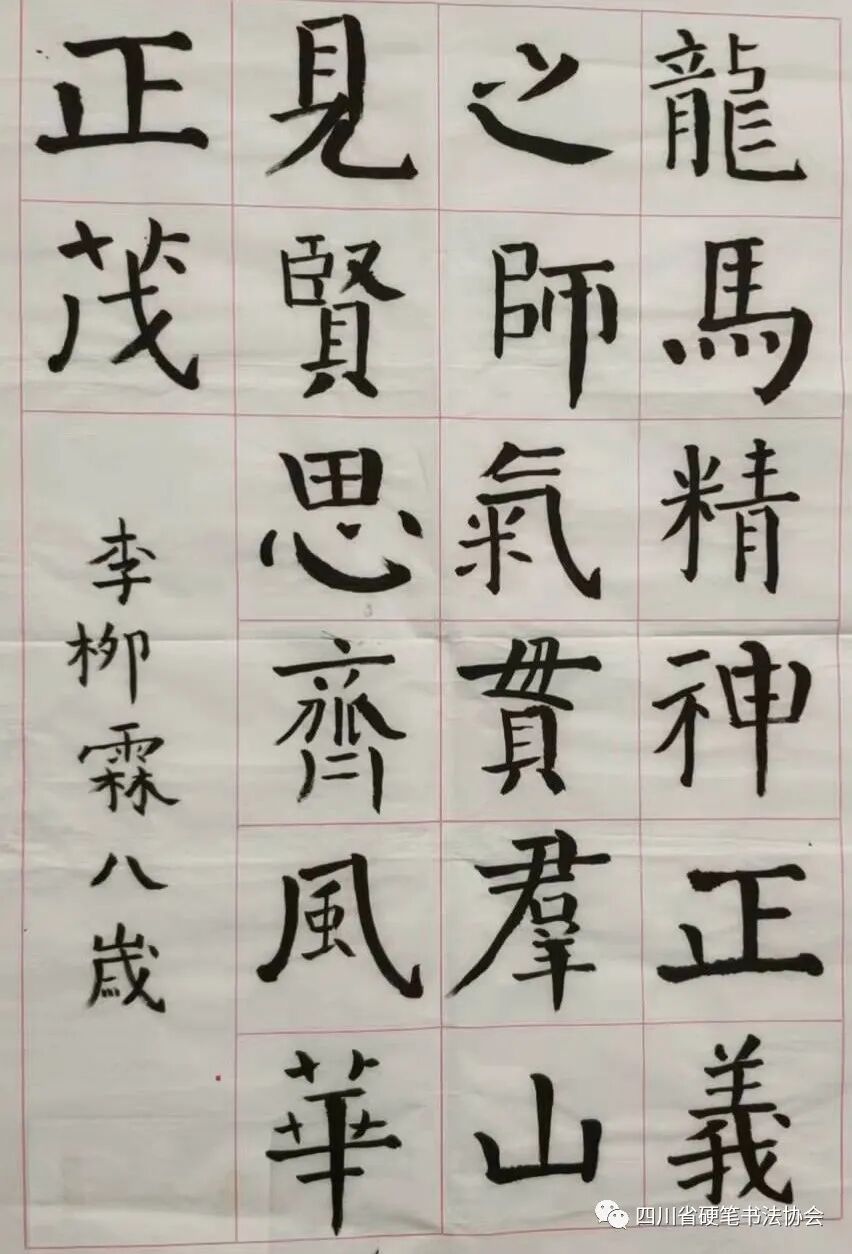 龍馬精神正義
之師氣貫羣山
見賢思齊風華
正茂
李柳霖八歲
四川省硬笔书法协会